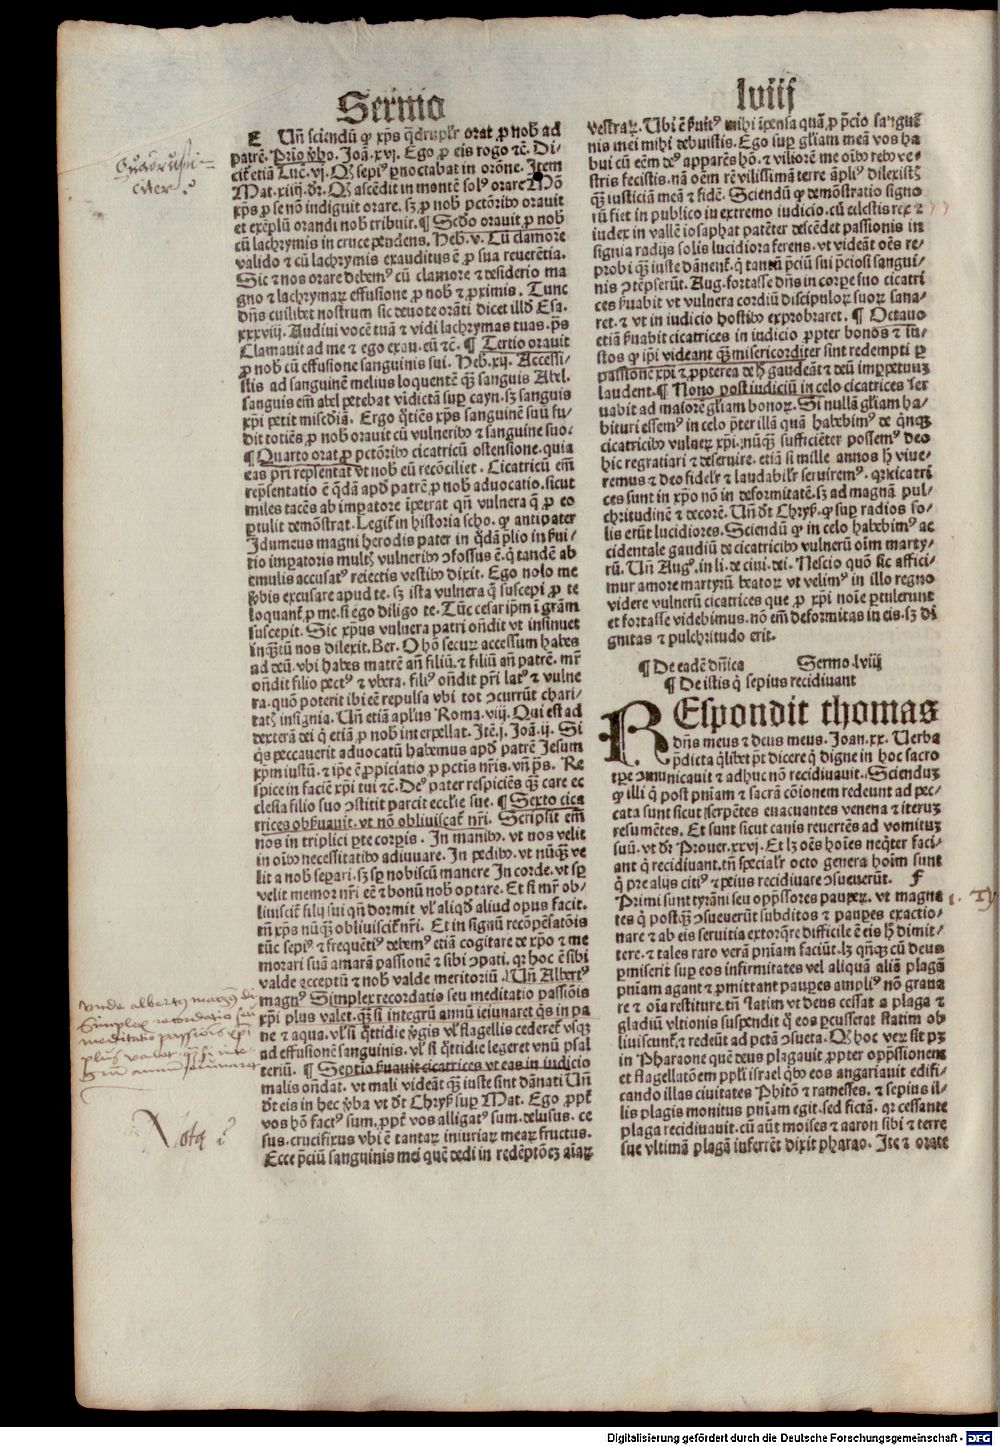 Sermo
lviij
E Uñ sciendũ ꝙ xp̃s q̃drupl'r orat ꝓ nob̃ ad
patrẽ. Prĩo ṽbo. Joã.xvj. Ego ꝓ eis rogo ⁊c̃. Di-
cit̃ etiã Luc̃.vj. Qꝫ sepiꝰ ꝑnoctabat in orõne. Itẽ
Mat.xiiij.dr̃. Qꝫ ascẽdit in montẽ solꝰ orare Nõ
xp̃s ꝓ se nõ indiguit orare.sꝫ ꝓ nob̃ pctõribꝰ orauit
et exẽplũ orandi nob̃ tribuit. ¶ Scd̃o orauit ꝓ nob̃
cũ lachrymis in cruce pendens. Heb.v. Cũ clamore
valido ⁊ cũ lachrymis exauditus ẽ ꝓ sua reuerẽtia.
Sic ⁊ nos orare debemꝰ cũ clamore ⁊ desiderio ma
gno ⁊ lachrymaꝝ effusione ꝓ nob̃ ⁊ ꝓximis. Tunc
dñs cuilibet nostrum sic deuote orãti dicet illd̃ Esa.
xxxviij. Audiui vocẽ tuã ⁊ vidi lachrymas tuas. p̃s
Clamauit ad me ⁊ ego exau.eũ ⁊c̃. ¶ Tertio orauit
ꝓ nob̃ cũ effusione sanguinis sui. Heb.xij. Accessi-
stis ad sanguinẽ melius loquentẽ q̃ꝫ sanguis Abel.
sanguis em̃ abel petebat vidictã suꝑ cayn.sꝫ sanguis
xp̃i petit miscd̃iã. Ergo q̃tiẽs xp̃s sanguinẽ suũ fu-
dit totiẽs ꝓ nob̃ orauit cũ vulneribꝰ ⁊ sanguine suo.
¶ Quarto orat ꝓ pctõribꝰ cicatricũ ostensione.quia
eas pr̃i rep̃sentat vt nob̃ eũ recõciliet. Cicatricũ em̃
rep̃sentatio ẽ q̃dã apd̃ patrẽ ꝓ nob̃ aduocatio.sicut
miles tacẽs ab imꝑatore ĩpetrat qñ vulnera q̃ ꝓ eo
ꝑtulit demõstrat. Legit̃ in historia scho. ꝙ antipater
Idumeus magni herodis pater in q̃dã p̃lio in ẽui-
tio imꝑatoris multꝭ vulneribꝰ ↄfossus ẽ.q̃ tandẽ ab
emulis accusatꝰ reiectis vestibꝰ dixit. Ego nolo me
ṽbis excusare apud te.sꝫ ista vulnera q̃ suscepi ꝓ te
loquant̃ ꝓ me.si ego diligo te. Tũc cesar ip̃m ĩ gr̃am
suscepit. Sic xp̃us vulnera patri oñdit vt insinuet
inq̃tũ nos dilexit. Ber. O hõ securꝫ accessum habes
ad deũ.vbi habes matrẽ añ filiũ.⁊ filiũ añ patrẽ. mr̃
oñdit filio pectꝰ ⁊ vbera. filiꝰ oñdit pr̃i latꝰ ⁊ vulne
ra.quõ poterit ibi eẽ repulsa vbi tot ↄcurrũt chari-
tatꝭ insignia. Uñ etiã apl'us Roma.viij. Qui est ad
dexterã dei q̃ etiã ꝓ nob̃ interpellat. Itẽ.j. Joã.ij. Si
q̃s peccauerit aduocatũ habemus apd̃ patrẽ Jesum
xp̃m iustũ.⁊ ip̃e ẽ ꝓpiciatio ꝓ pctĩs nr̃is.vñ p̃s. Re
spice in faciẽ xp̃i tui ⁊c̃. Deꝰ pater respiciẽs q̃ꝫ care ec
clesia filio suo ↄstitit parcit eccl'ie sue. ¶ Sexto cica
trices obẽuauit.vt nõ obliuiscat̃ nr̃i. Scripsit em̃
nos in triplici ꝑte corꝑis. In manibꝰ.vt nos velit
in oĩbꝰ necessitatibꝰ adiuuare. In pedibꝰ.vt nũq̃ꝫ ve
lit a nob̃ seꝑari.sꝫ sꝑ nobiscũ manere In corde.vt sꝑ
velit memor nr̃i eẽ ⁊ bonũ nob̃ optare. Et si mr̃ ob-
liuiscit̃ filij sui qñ dormit vl' aliqd̃ aliud opus facit.
tñ xp̃s nũq̃ꝫ obliuiscit̃ nr̃i. Et in signũ recõpẽsatõis
tũc sepiꝰ ⁊ frequẽtiꝰ debemꝰ etiã cogitare de xp̃o ⁊ me
morari suã amarã passionẽ ⁊ sibi ↄpati.qꝛ hoc ẽ sibi
valde acceptũ ⁊ nob̃ valde meritoriũ. Uñ Albertꝰ
magnꝰ Simplex recordatis seu meditatio passiõis
xp̃i plus valet.q̃ꝫ si integrũ annũ ieiunaret q̃s in pa
ne ⁊ aqua.vl' si q̃ttidie ṽgis vl' flagellis cederet̃ vsqꝫ
ad effusionẽ sanguinis.vl' si q̃ttidie legeret vnũ psal
teriũ. ¶ Septĩo ẽuauit cicatrices vt eas in iudicio
malis oñdat.vt mali videãt q̃ꝫ iuste sint dãnati Uñ
dr̃t eis in hec ṽba vt dr̃t Chryẽ suꝑ Mat. Ego ꝓpt̃
vos hõ factꝰ sum.ꝓpt̃ vos alligatꝰ sum.delusus.ce
sus.crucifixus vbi ẽ tantaꝝ iniuriaꝝ meaꝝ fructus.
Ecce p̃ciũ sanguinis mei quẽ dedi in redẽptõeꝫ aĩaꝝ
vestraꝝ. Ubi ẽ ẽuitꝰ mihi ĩpensa quã ꝓ p̃cio sangui
nis mei mihi debuistis. Ego suꝑ gl'iam meã vos ha
bui cũ eẽm deꝰ apparẽs hõ.⁊ viliorẽ me oĩbꝰ rebꝰ ve-
stris fecistis.nã oẽm rẽ vilissimã terre ãpliꝰ dilexistꝭ
q̃ꝫ iusticiã meã ⁊ fidẽ. Sciendũ ꝙ demõstratio signo
iũ fiet in publico in extremo iudicio.cũ celestis rex ⁊
iudex in vallẽ iosaphat patẽter descẽdet passionis in
signia radijs solis lucidiora ferens.vt videãt oẽs re-
probi q̃ꝫ iuste dãnent̃.q̃ tantũ p̃ciũ sui p̃ciosi sangui-
nis ↄtẽpserũt. Aug.fortasse dñs in corꝑe suo cicatri
ces ẽuabit vt vulnera cordiũ discipuloꝝ suoꝝ sana-
ret.⁊ vt in iudicio hostibꝰ exprobraret. ¶ Octauo
etiã ẽuabit cicatrices in iudicio ꝓpter bonos ⁊ iu-
stos ꝙ ip̃i videant q̃ꝫ misericorditer sint redempti ꝑ
passionẽ xp̃i ⁊ ꝓpterea de h̃ gaudeãt ⁊ deũ imꝑpetuuꝫ
laudent. ¶ Nono post iudiciũ in celo cicatrices ser
uabit ad maiorẽ gl'iam bonoꝝ. Si nullã gl'iam ha-
bituri essemꝰ in celo p̃ter illã quã habebimꝰ de q̃nqꝫ
cicatricibꝰ vulneꝝ xp̃i.nũq̃ꝫ sufficiẽter possemꝰ deo
hic regratiari ⁊ deseruire.etiã si mille annos h̃ viue-
remus ⁊ deo fidel'r ⁊ laudabil'r seruiremꝰ.qꝛ cicatri
ces sunt in xp̃o nõ in deformitatẽ.sꝫ ad magnã pul-
chritudinẽ ⁊ decorẽ. Uñ dr̃t Chryẽ.ꝙ suꝑ radios so-
lis erũt lucidiores. Sciendũ ꝙ in celo habebimꝰ ac
cidentale gaudiũ de cicatricibꝰ vulnerũ oĩm marty-
rũ. Uñ Augꝰ.in li.de ciui.dei. Nescio quõ sic affici-
mur amore martyrũ beatoꝝ vt velimꝰ in illo regno
videre vulnerũ cicatrices que ꝓ xp̃i noĩe ꝑtulerunt
et fortasse videbimus.nõ em̃ deformitas in eis.sꝫ di
gnitas ⁊ pulchritudo erit.
¶ De eadẽ dñica Sermo.lviij
¶ De istis q̃ sepius recidiuant
REspondit thomas
dñs meus ⁊ deus meus. Joan.xx. Uerba
p̃dicta q̃libet p̃t dicere q̃ digne in hoc sacro
tꝑe ↄmunicauit ⁊ adhuc nõ recidiuauit. Sciendũ
ꝙ illi q̃ post pñiam ⁊ sacrã cõionem redeunt ad pec-
cata sunt sicut serpẽtes euacuantes venena ⁊ iteruꝫ
resumẽtes. Et sunt sicut canis reuertẽs ad vomituꝫ
suũ.vt dr̃ Prouer.xxvj. Et lꝫ oẽs hoĩes neq̃ter faci-
ant q̃ recidiuant.tñ special'r octo genera hoĩm sunt
q̃ pre alijs citiꝰ ⁊ peius recidiuare ↄsueuerũt. F
Primi sunt tyrãni seu opp̃ssores pauꝑeꝝ. vt magna
tes q̃ postq̃ꝫ ↄsueuerũt subditos ⁊ pauꝑes exactio-
nare ⁊ ab eis seruitia extorq̃re difficile ẽ eis h̃ dimit-
tere.⁊ tales raro verã pñiam faciũt.lꝫ qñqꝫ cũ deus
ꝑmiserit suꝑ eos infirmitates vel aliquã aliã plagã
pñiam agant ⁊ ꝓmittant pauꝑes ampliꝰ nõ graua
re ⁊ oĩa restituere.tñ statim vt deus cessat a plaga ⁊
gladiũ vltionis suspendit q̃ eos ꝑcusserat statim ob
liuiscunt̃.⁊ redeũt ad pctã ↄsueta. Qꝫ hoc veꝝ sit pꝫ
in Pharaone quẽ deus plagauit ꝓpter opp̃ssionem
et flagellatõem ppl'i israel q̃bꝰ eos angariauit edifi-
cando illas ciuitates Phitõ ⁊ ramesses.⁊ sepius il-
lis plagis monitus pñiam egit.sed fictã.qꝛ cessante
plaga recidiuauit.cũ aũt moises ⁊ aaron sibi ⁊ terre
sue vltimã plagã inferrẽt dixit pharao. Ite ⁊ orate
Quadrupli-
citer
Unde albertꝰ magnꝰ dt
Simplex recordatio seu
meditatio passionis xp̃i
plus valet q̃ꝫ si inte
grum annum ieiunaret
Nota
1. Ty
Digitalisierung gefördert durch die Deutsche Forschungsgemeinschaft - DFG